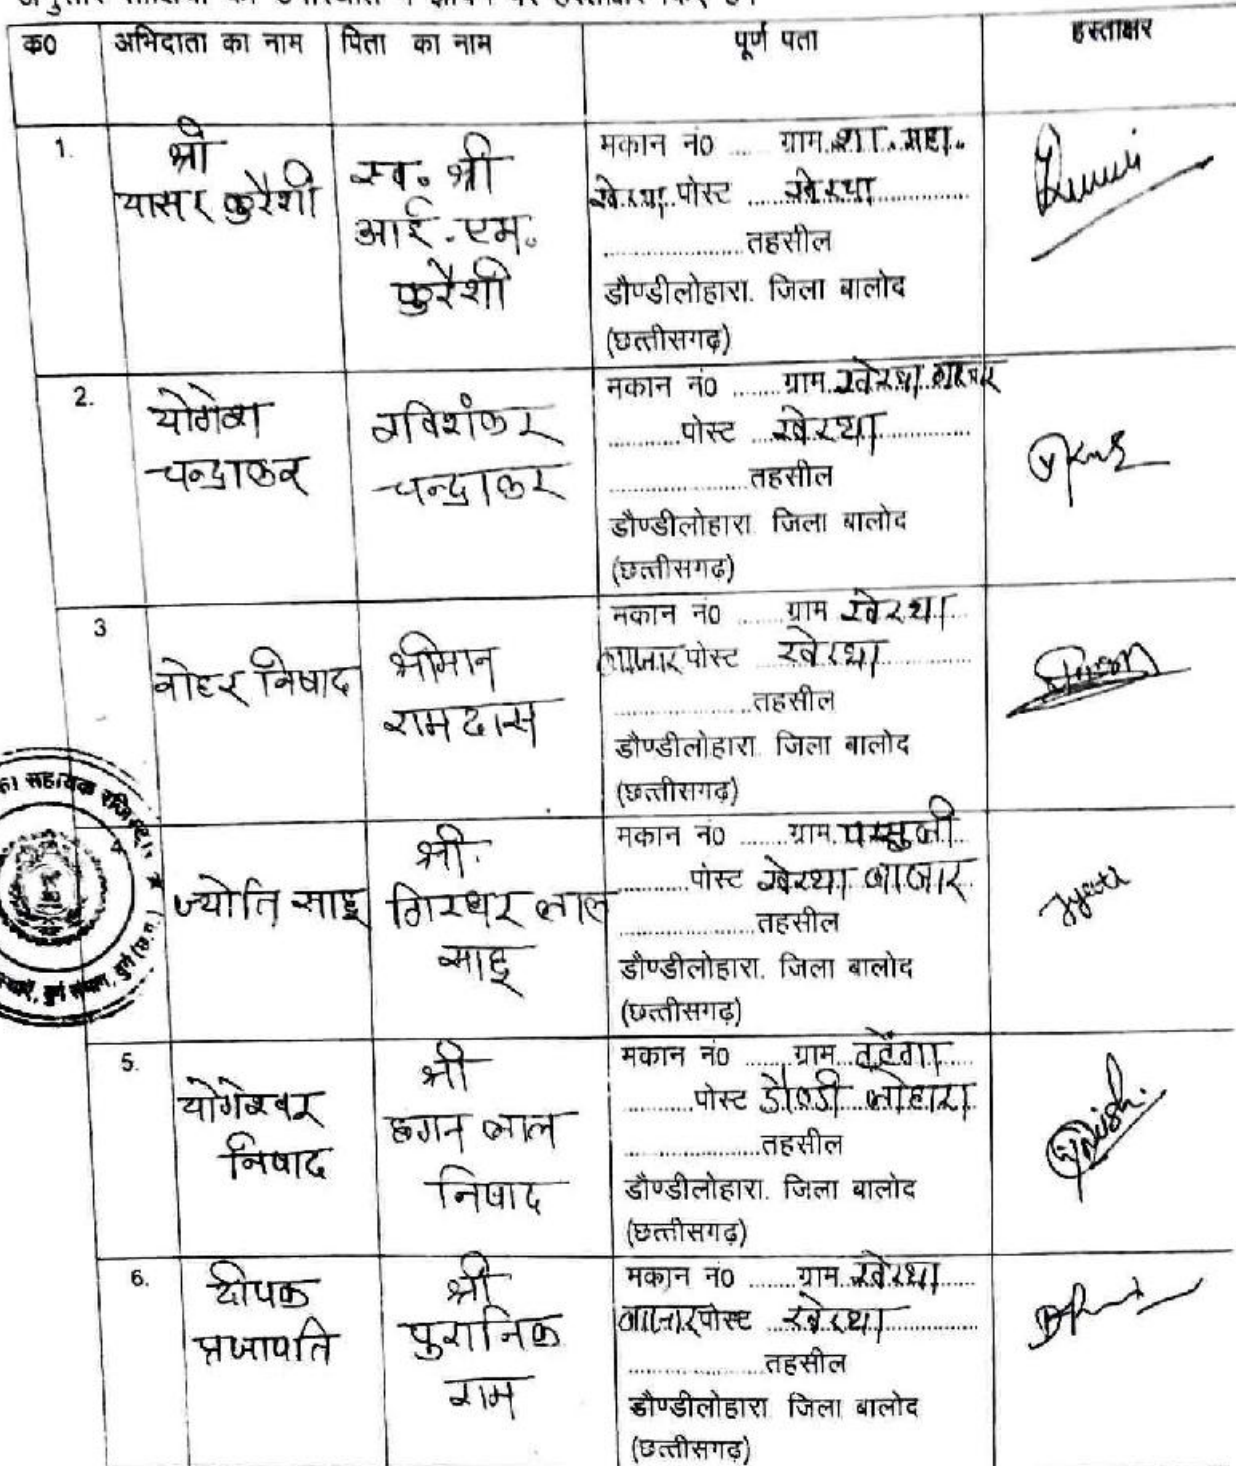 क0 अभिदाता का नाम पिता का नाम पूर्ण पता हस्ताक्षर
1. श्री यासर कुरैशी स्व. श्री आई.एम. कुरैशी
मकान नं0 .... ग्राम शा. महा.
खेरथा पोस्ट ..... खेरथा
तहसील
डौण्डीलोहारा. जिला बालोद
(छत्तीसगढ़)
2. योगेश चन्द्राकर रविशंकर चन्द्राकर
मकान नं0 ....... ग्राम खेरथा बाजार
.........पोस्ट ...खेरथा
तहसील
डौण्डीलोहारा. जिला बालोद
(छत्तीसगढ़)
3 नोहर निषाद श्रीमान रामदास
मकान नं0 ....... ग्राम खेरथा
बाजार पोस्ट खेरथा
तहसील
डौण्डीलोहारा. जिला बालोद
(छत्तीसगढ़)
4 ज्योति साहू श्री. गिरधर लाल साहू
मकान नं0 ........ ग्राम
पोस्ट खेरथा बाजार
तहसील
डौण्डीलोहारा. जिला बालोद
(छत्तीसगढ़)
5. योगेश्वर निषाद श्री छगन लाल निषाद
मकान नं0 ....... ग्राम
.........पोस्ट डौण्डी लोहारा
तहसील
डौण्डीलोहारा. जिला बालोद
(छत्तीसगढ़)
6. दीपक प्रजापति श्री पुरानिक राम
मकान नं0 ....... ग्राम खेरथा
बाजार पोस्ट खेरथा
तहसील
डौण्डीलोहारा जिला बालोद
(छत्तीसगढ़)
सहायक
Jyoti